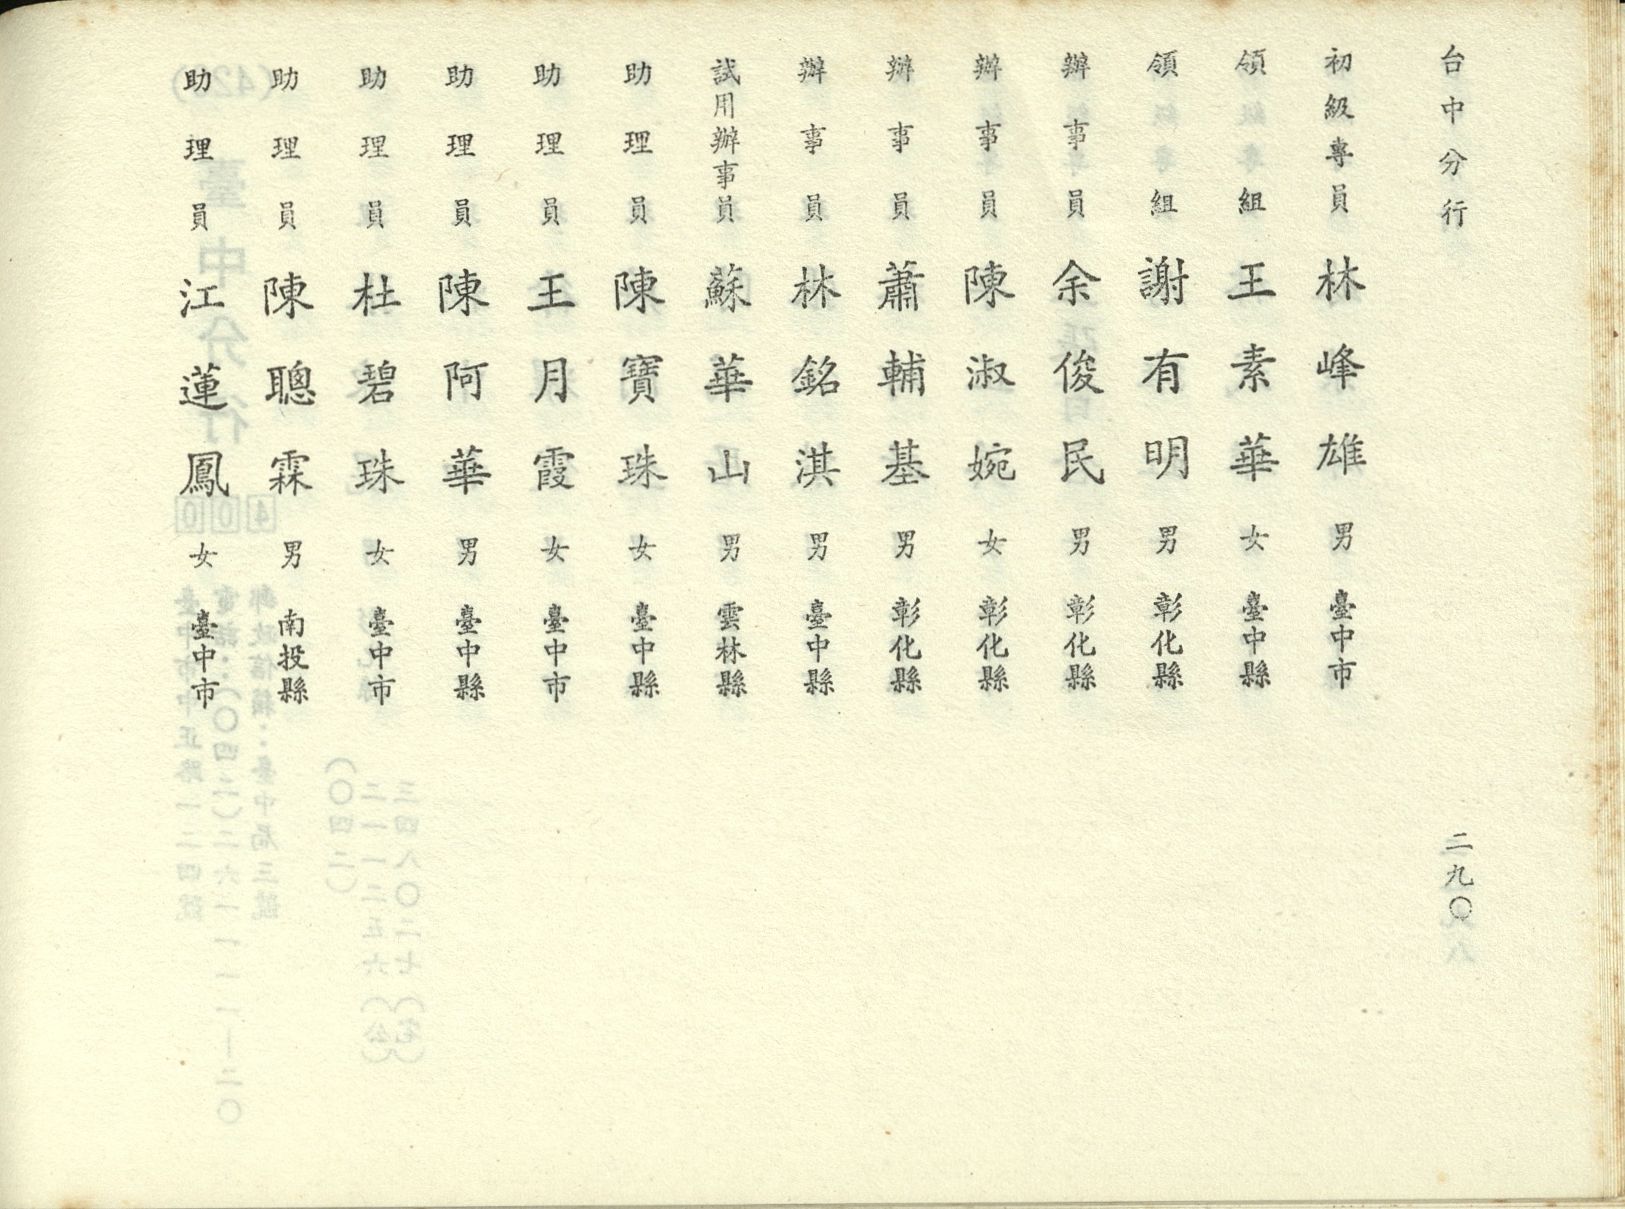 台中分行
二九〇
初級專員 林峰雄 男 臺中市
領組 王素華 女 臺中縣
領組 謝有明 男 彰化縣
辦事員 余俊民 男 彰化縣
辦事員 陳淑婉 女 彰化縣
辦事員 蕭輔基 男 彰化縣
辦事員 林銘淇 男 臺中縣
試用辦事員 蘇華山 男 雲林縣
助理員 陳寶珠 女 臺中縣
助理員 王月霞 女 臺中市
助理員 陳阿華 男 臺中縣
助理員 杜碧珠 女 臺中市
助理員 陳聰霖 男 南投縣
助理員 江蓮鳳 女 臺中市